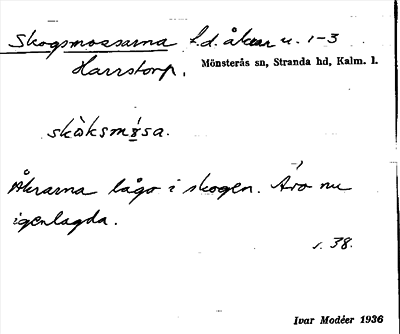 Skogsmossarna f.d. åkrar u. 1-3
Harrstorp. Mönsterås sn, Stranda hd, Kalm. l.
skòksmósa.
Åkrarna lågo i skogen. Äro nu
igenlagda.
s. 38.
Ivar Modéer 1936